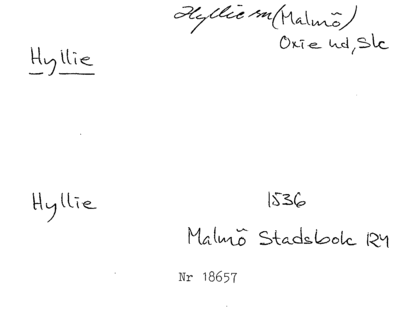 Hyllie sn (Malmö)
Oxie hd, Sk
Hyllie
Hyllie 1536
Malmö Stadsbok 124
Nr 18657